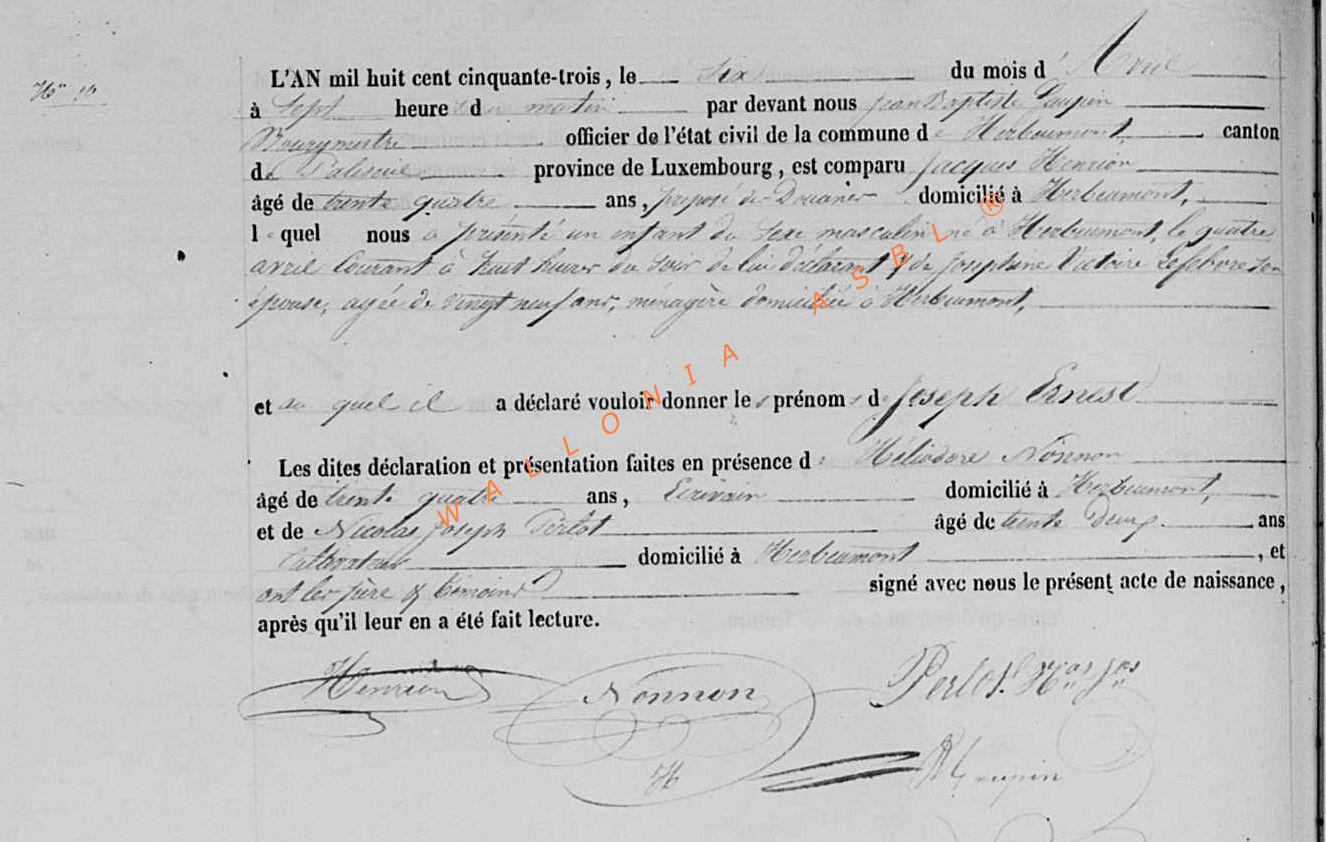 N° 19
L'AN mil huit cent cinquante-trois, le six du mois d'Avril
à Sept heure du matin par devant nous Jean Baptiste Laupin
Bourgmestre officier de l'état civil de la commune de Herbeumont, canton
de Paliseul province de Luxembourg, est comparu Jacques Henrion
âgé de trente quatre ans, préposé de Douanier domicilié à Herbeumont,
lequel nous a présenté un enfant du sexe masculin né à Herbeumont, le quatre
avril courant à huit heures du soir de lui déclarant & de Joséphine Victoire Lefebvre son
épouse, agée de vingt neuf ans, ménagère domiciliée à Herbeumont,
et au quel il a déclaré vouloir donner les prénoms de Joseph Ernest
Les dites déclaration et présentation faites en présence de Héliodore Nonnon
âgé de trente quatre ans, Ecrivain domicilié à Herbeumont,
et de Nicolas Joseph Perlot âgé de trente deux ans
Cultivateur domicilié à Herbeumont, et
ont les père & témoins signé avec nous le présent acte de naissance,
après qu'il leur en a été fait lecture.
Henrion Nonnon Perlot Nas Jos
H
WALLONIA ASBL ®